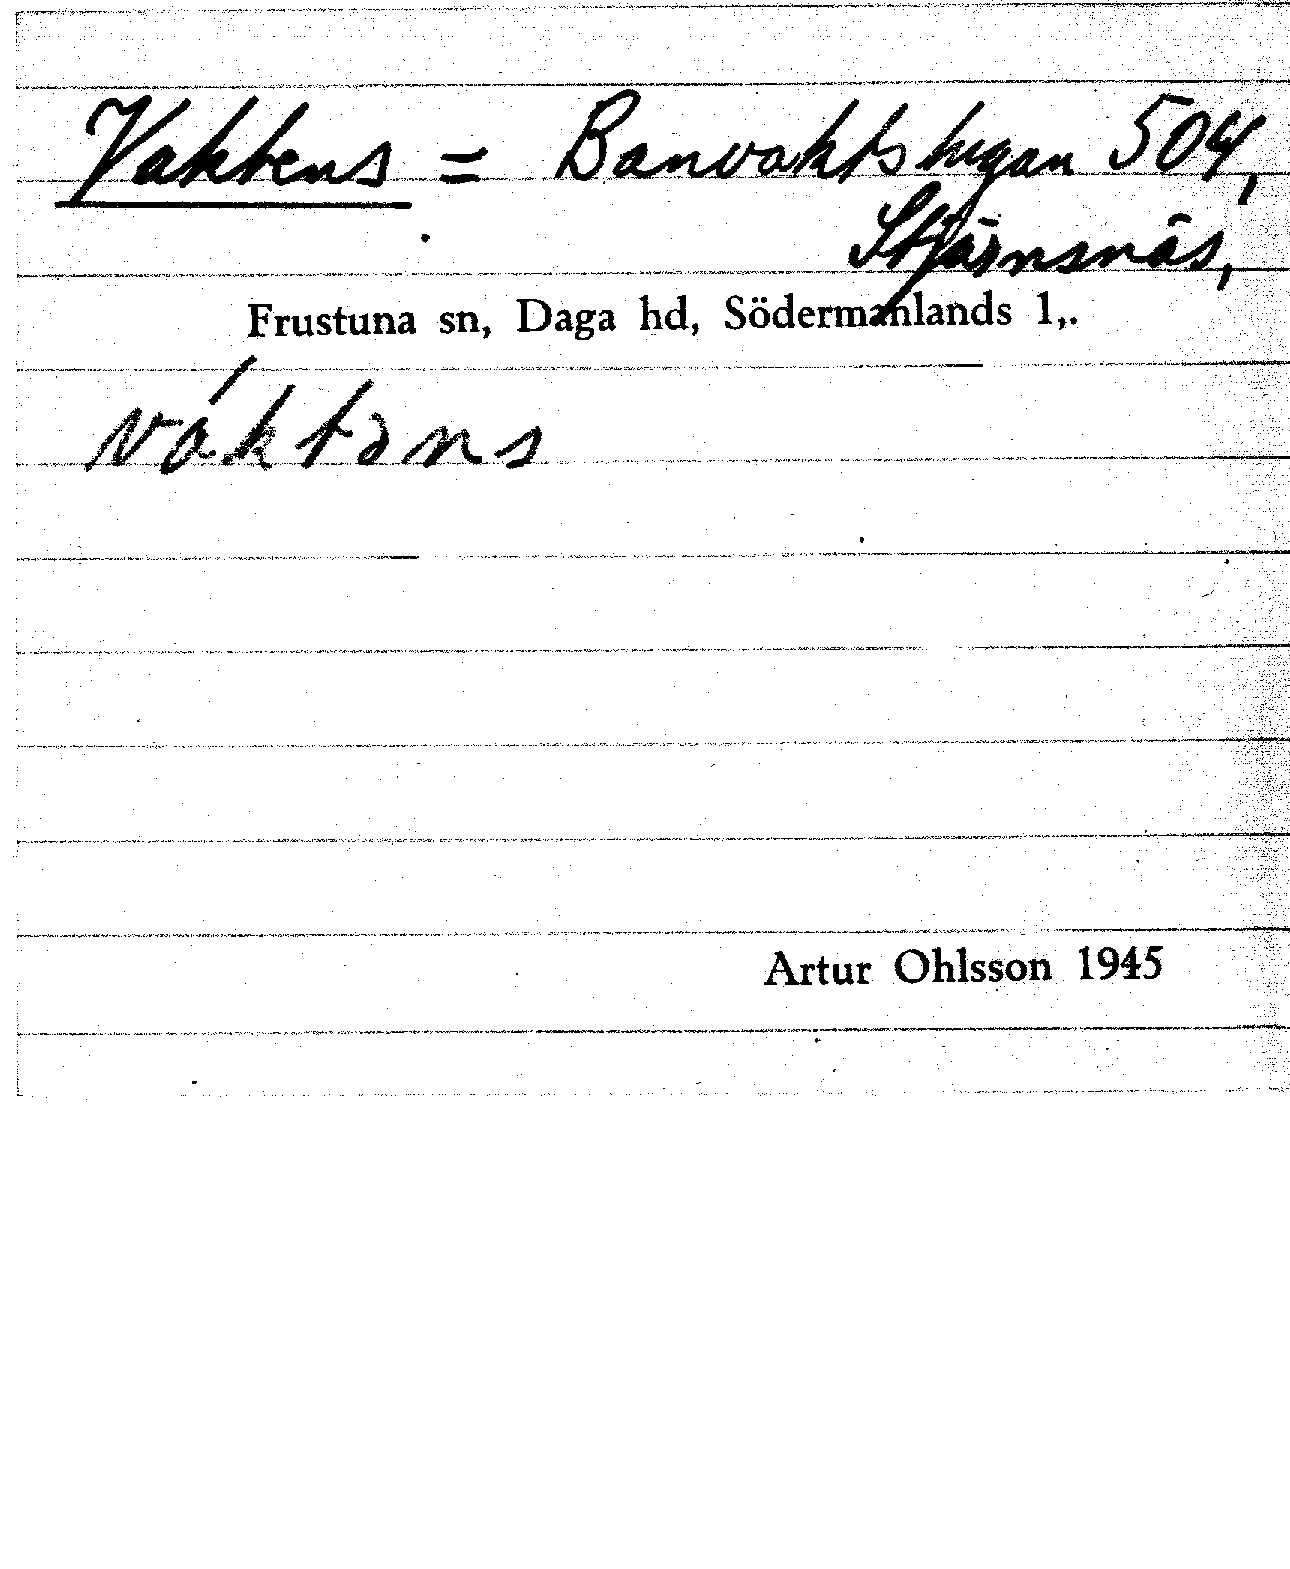 Vaktens = Banvaktstugan 504,
Stjärnsnäs,
Frustuna sn, Daga hd, Södermanlands l,.
váktəns
Artur Ohlsson 1945